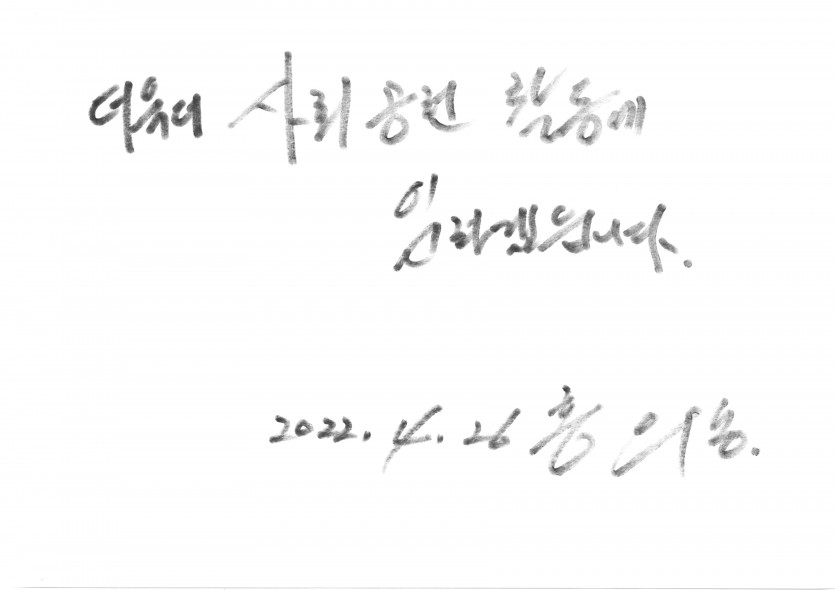 더욱더 사회 공헌 활동에
임하겠습니다.
2022. 4. 26 홍의용.